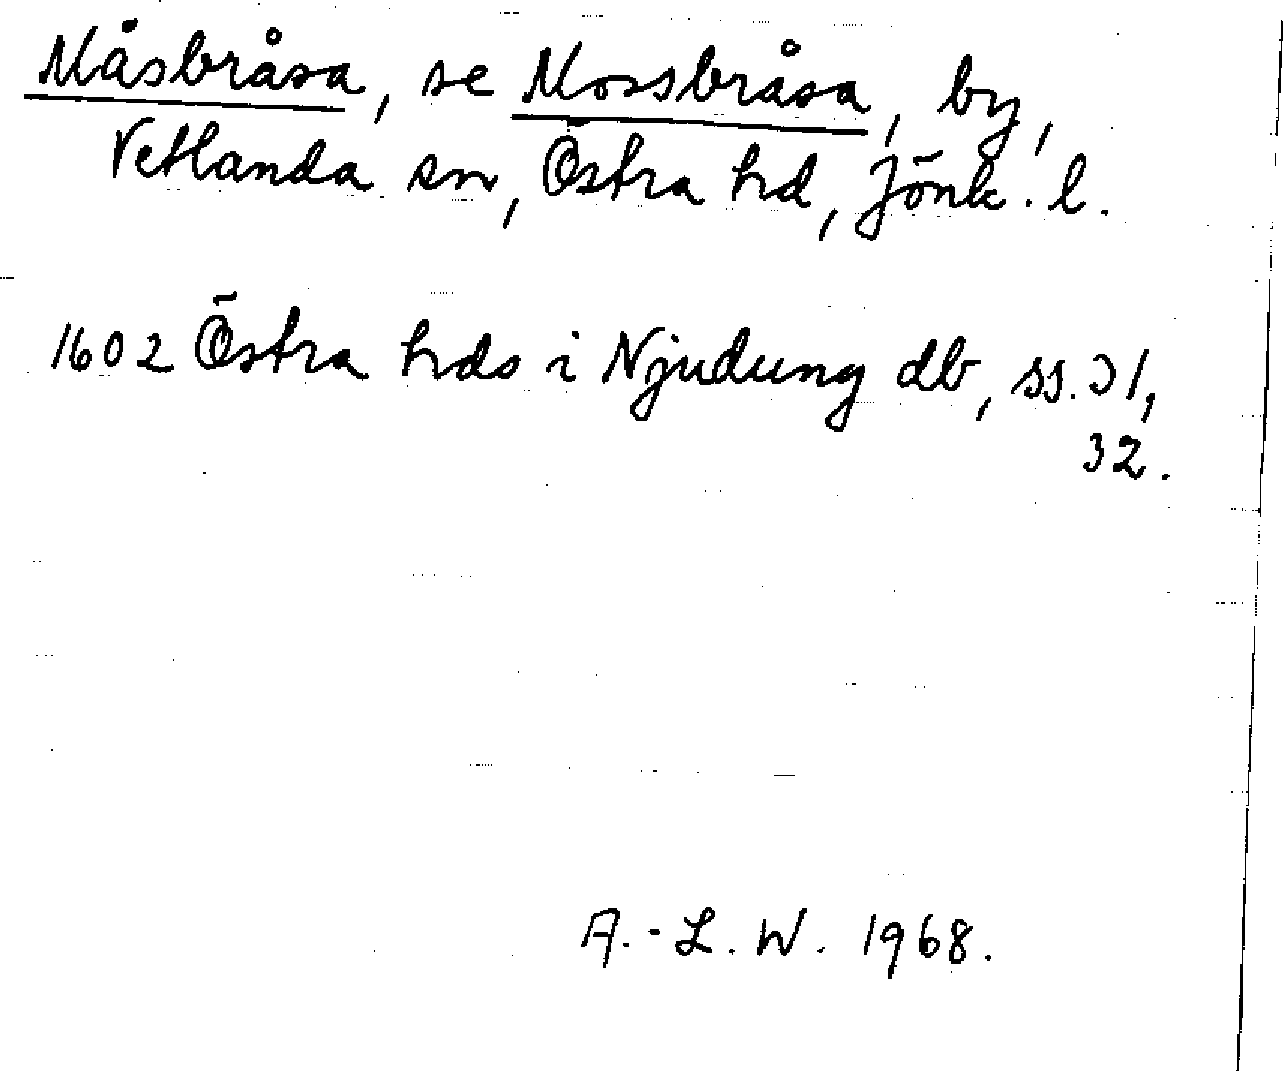 Måsbråsa, se Mossbråsa, by,
Vetlanda sn, Östra hd, Jönk. l.
1602 Östra hds i Njudung db, ss. 31,
32.
A.-L. W. 1968.